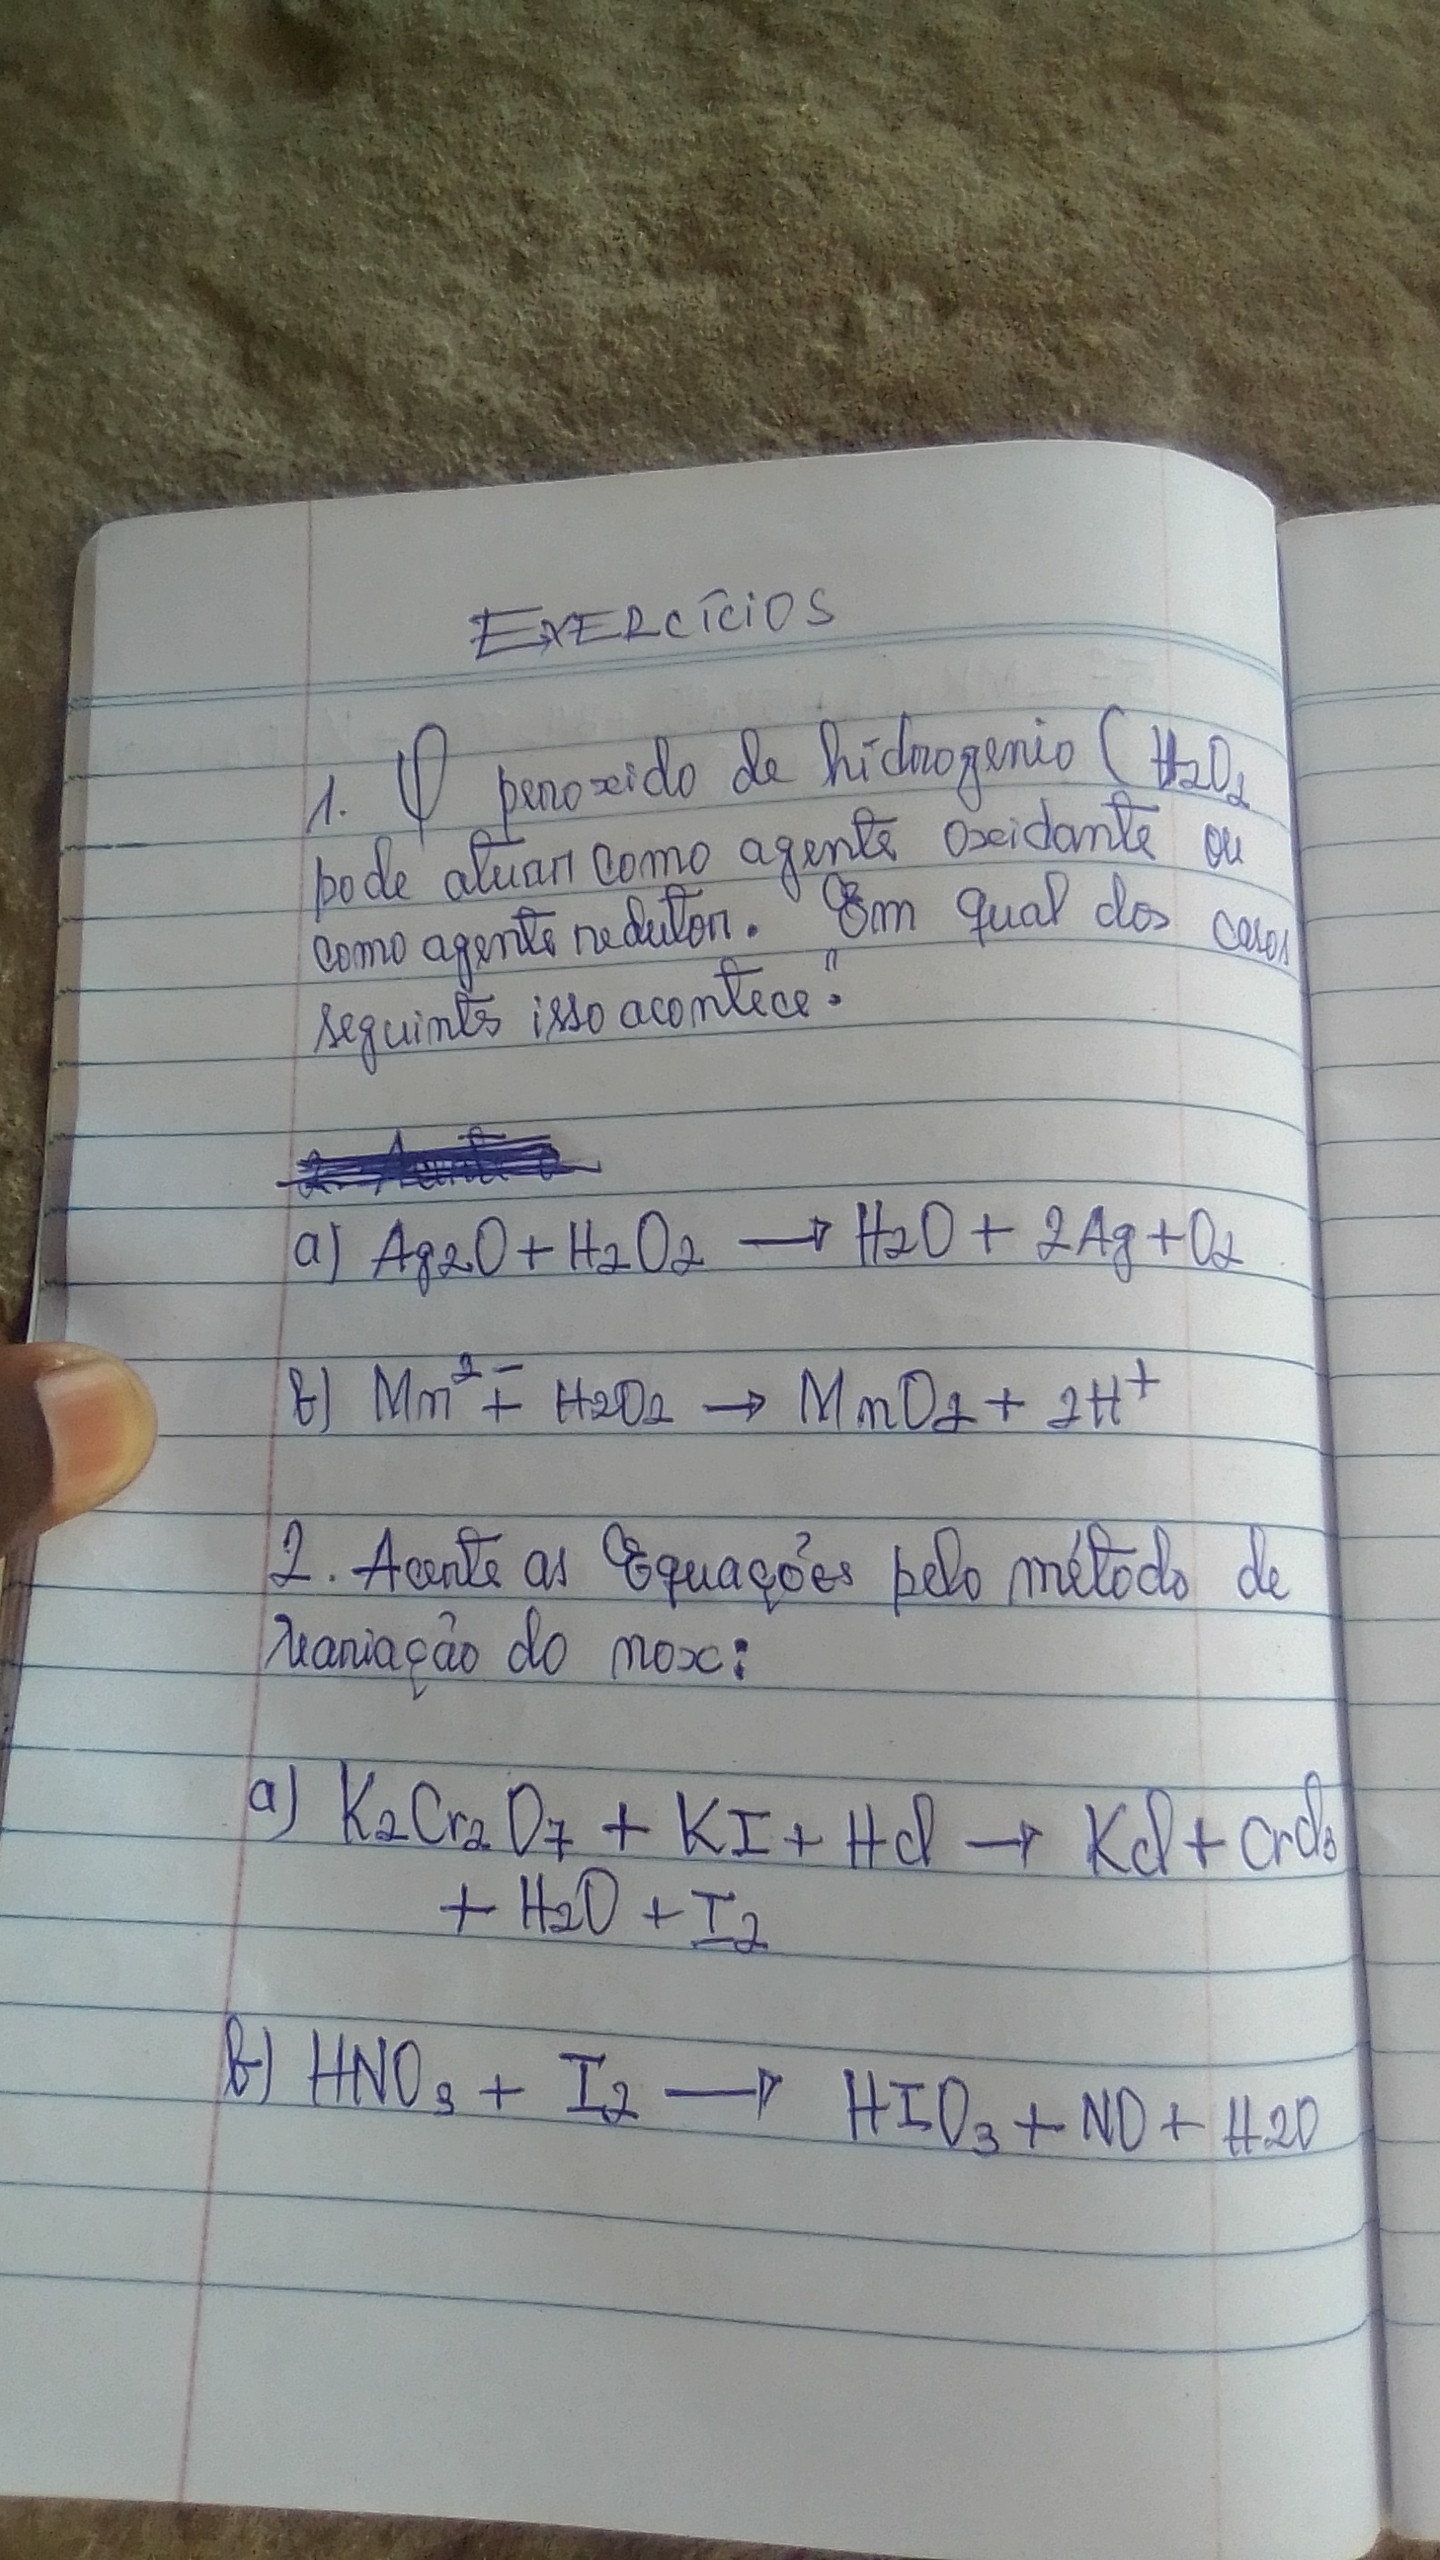 EXERCÍCIOS
1. O peroxido de hidrogenio (H2O2
pode atuar como agente oxidante ou
como agente redutor. Em qual dos casos
seguintes isso acontece?
a) Ag2O + H2O2 → H2O + 2Ag + O2
b) Mn²⁺ + H2O2 → MnO2 + 2H⁺
2. Acerte as Equações pelo método de
variação do nox:
a) K2Cr2O7 + KI + HCl → KCl + CrCl3
+ H2O + I2
b) HNO3 + I2 → HIO3 + NO + H2O